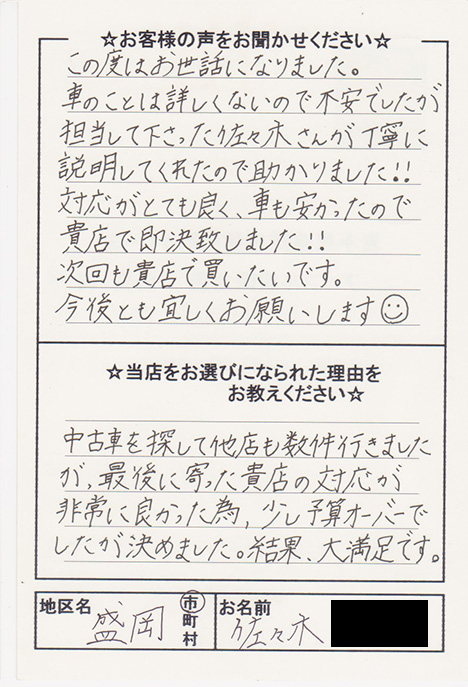 ☆お客様の声をお聞かせください☆
この度はお世話になりました。
車のことは詳しくないので不安でしたが
担当して下さった佐々木さんが丁寧に
説明してくれたので助かりました!!
対応がとても良く、車も安かったので
貴店で即決致しました!!
次回も貴店で買いたいです。
今後とも宜しくお願いします
☆当店をお選びになられた理由を
お教えください☆
中古車を探して他店も数件行きました
が、最後に寄った貴店の対応が
非常に良かった為、少し予算オーバーで
したが決めました。結果、大満足です。
地区名 盛岡 市 町 村 お名前 佐々木